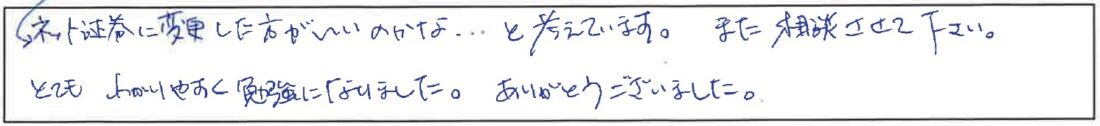 ネット証券に変更した方がいいのかな… と考えています。 また相談させて下さい。
とても わかりやすく 勉強になりました。 ありがとうございました。